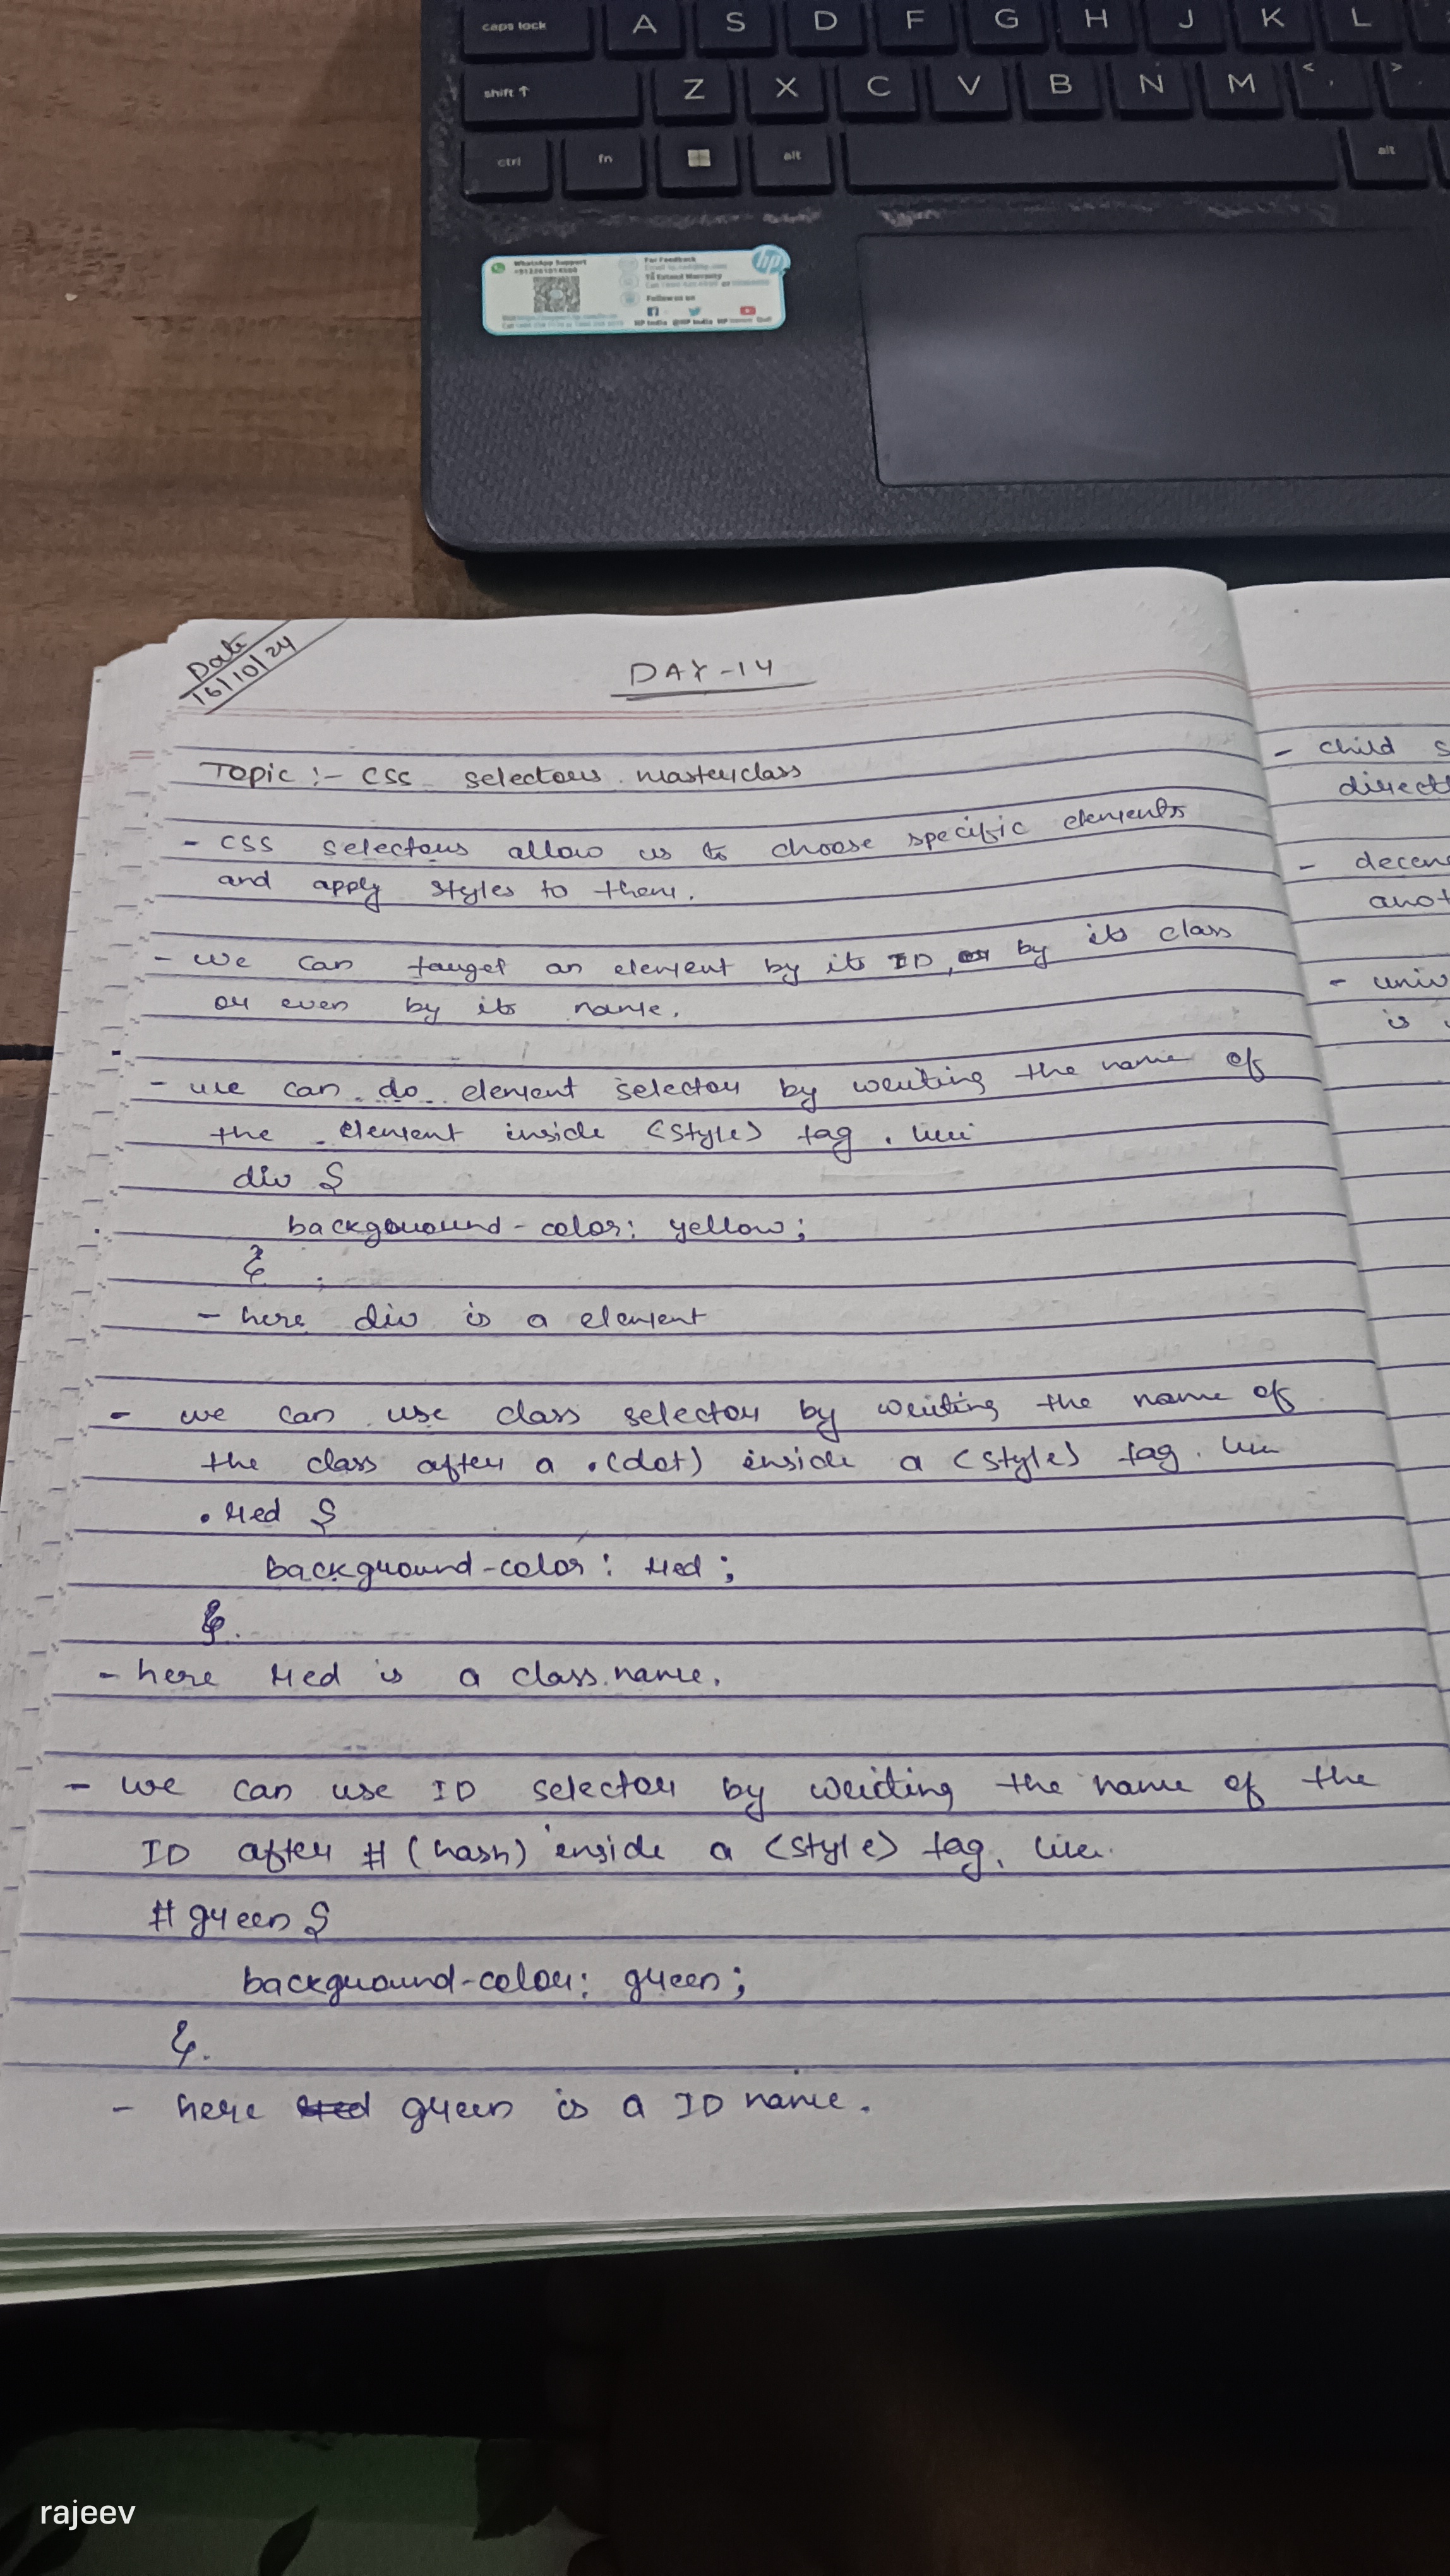 caps lock A S D F G H J K L
shift ↑ Z X C V B N M < , >
ctrl fn alt alt
WhatsApp Support
For Feedback
hp
To Extend Warranty
Follow us on
HP India @HP India
Date
16/10/24
DAY-14
Topic :- CSS selectors masterclass
- CSS selectors allow us to choose specific elements
and apply styles to them.
- we can target an element by its ID, or by its class
or even by its name.
- we can do element selector by writing the name of
the element inside <style> tag. like
div {
background-color: yellow;
}
- here div is a element
- we can use class selector by writing the name of
the class after a .(dot) inside a <style> tag. like
.red {
background-color: red;
}.
- here red is a class name.
- we can use ID selector by writing the name of the
ID after # (hash) inside a <style> tag, like.
#green {
background-color: green;
}.
- here red green is a ID name.
- child s
direct
- decen
anot
- univ
is
rajeev